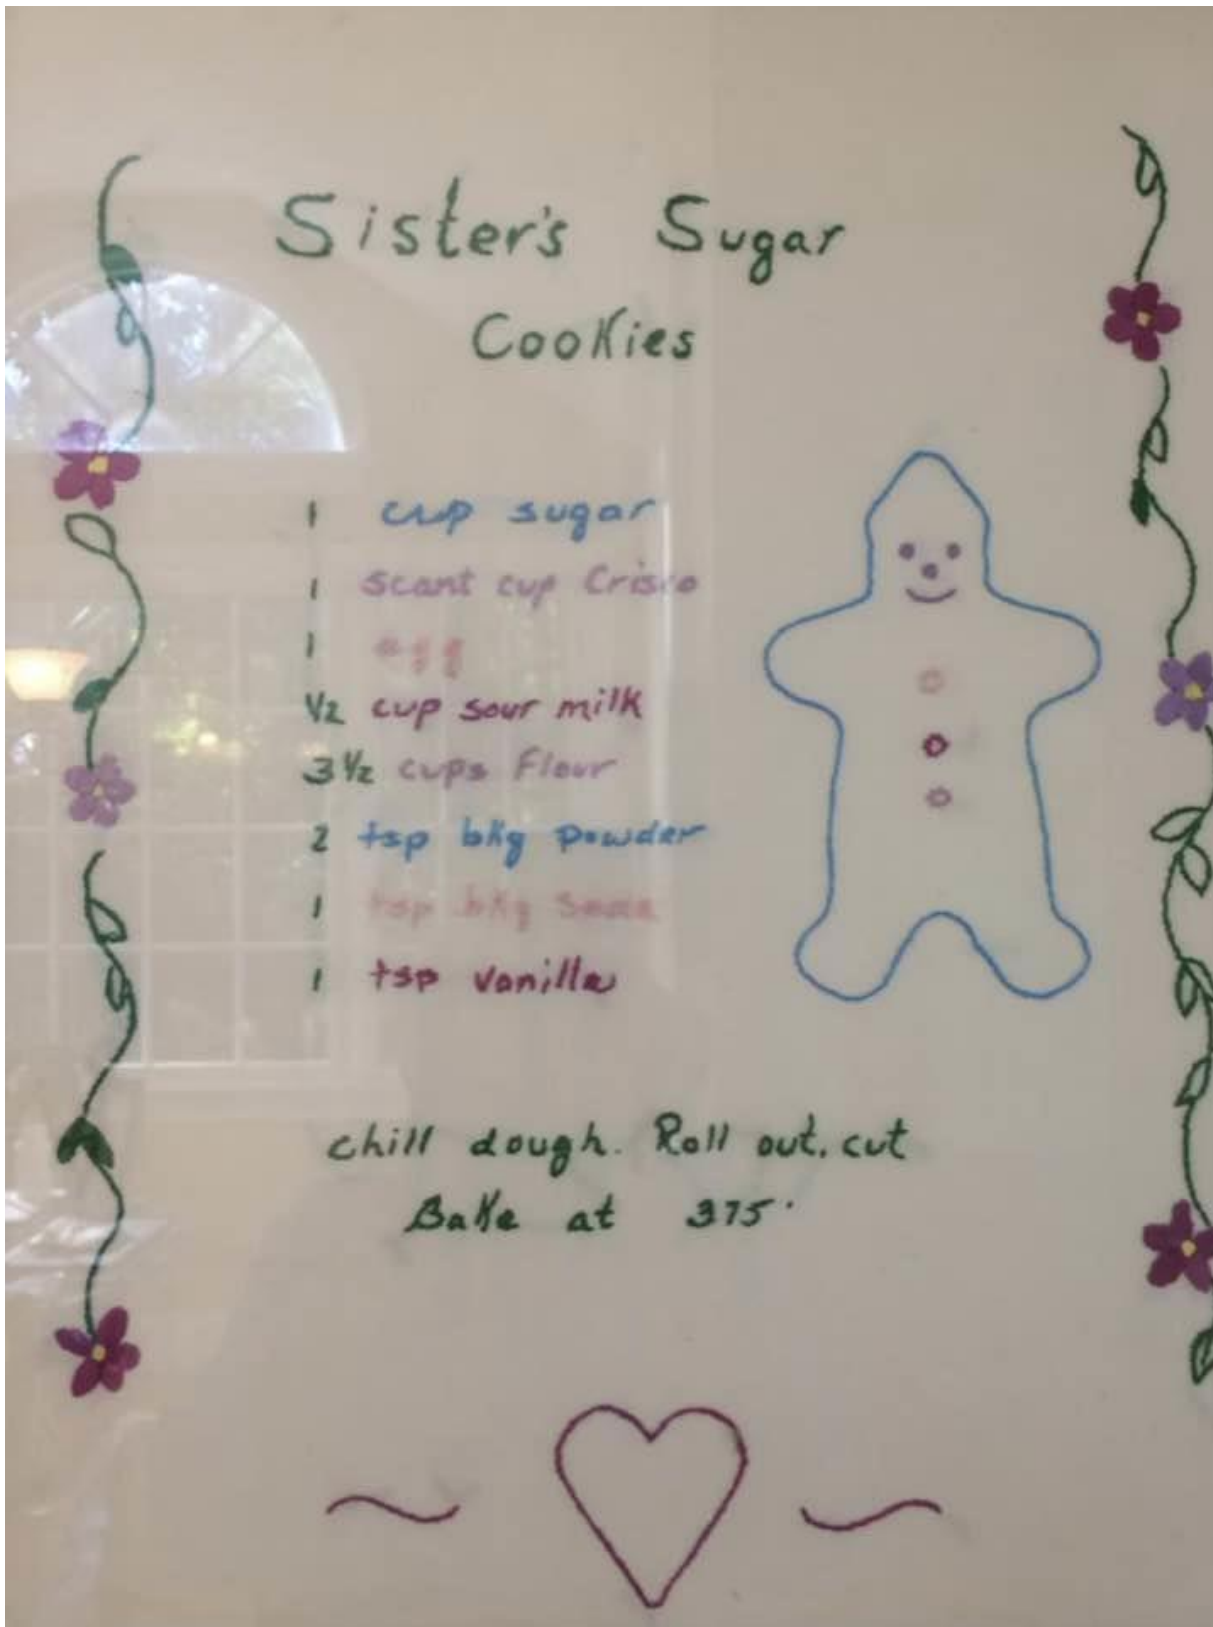 Sister's Sugar
Cookies
1 cup sugar
1 scant cup Crisco
1 egg
1/2 cup sour milk
3 1/2 cups Flour
2 tsp bkg powder
1 tsp bkg soda
1 tsp vanilla
chill dough. Roll out, cut
Bake at 375°